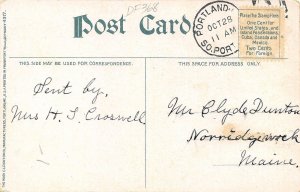 DF368
Post Card
PORTLAND,
OCT 28
11 AM
SO. PORT.
Place the Stamp Here
One Cent for
United States, and
Island Possessions,
Cuba, Canada and
Mexico.
Two Cents
for Foreign.
THIS SPACE MAY BE USED FOR CORRESPONDENCE.
THIS SPACE FOR ADDRESS.
Sent by
Mrs H. S. Croswell
Mr Clyde Dunton
Norridgewock
Maine.